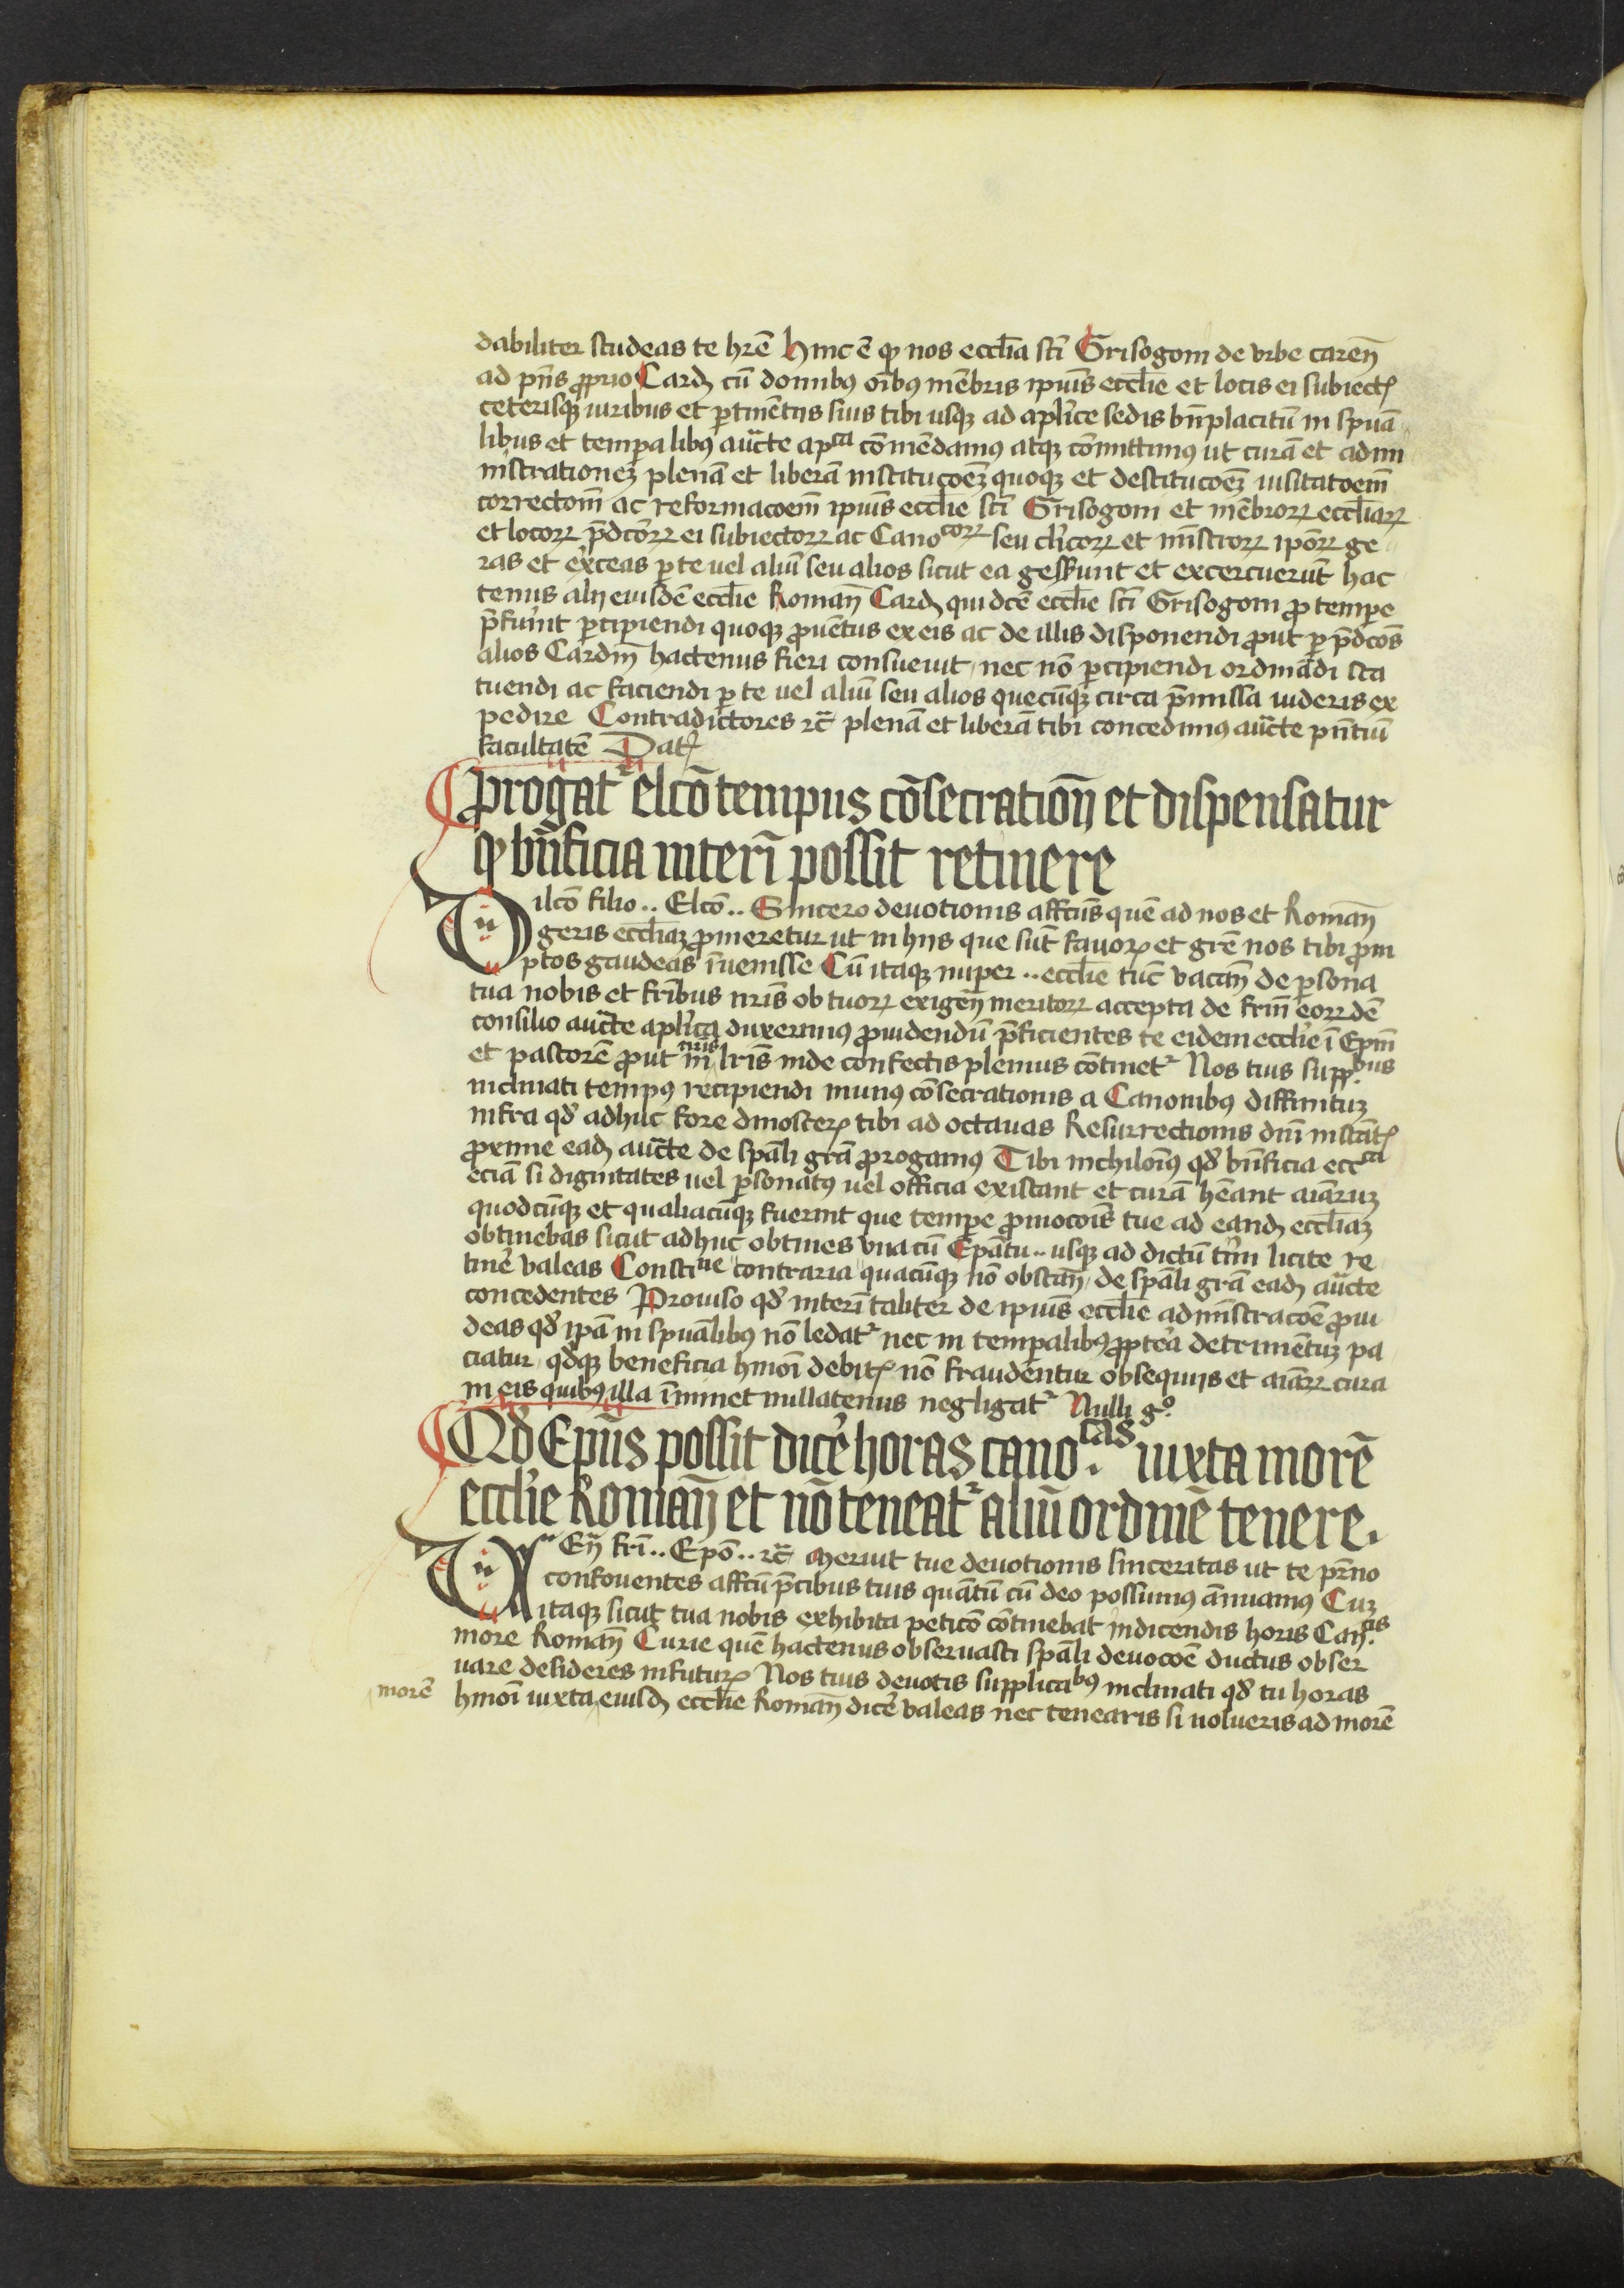 dabiliter studeas te hr̄e hinc ē ꝙ nos eccl̄ia sc̄i Grisogoni de vrbe caren̄
ad p̄ns ꝓprio Card cū domibꝰ oībꝰ mēbris ipīus eccl̄ie et locis ei subiectꝭ
ceterisqꝫ iuribus et ꝑtinētijs suis tibi usqꝫ ad apl̓ice sedis bn̄placitū in spūa
libus et tempalibꝰ auc̄te apᶜᵃ cōmēdamus atqꝫ cōmittimꝰ ut curā et admi
nistrationeꝫ plenā et liberā institucōeꝫ quoqꝫ et destitucōeꝫ uisitatōem
correctōm̄ ac reformacōem̄ ipīus eccl̄ie sc̄i Grisogoni et mēbroꝝ eccl̄iaꝝ
et locoꝝ p̄dc̄oꝝ ei subiectoꝝ ac Canoᶜᵒꝝ seu cl̓icoꝝ et mīstroꝝ ipōꝝ ge
ras et ex̓ceas ꝑ te uel aliū seu alios sicut ea gesserunt et excercuerūt hac
tenus alij eiusdē eccl̄ie Roman̄ Card qui dc̄e eccl̄ie sc̄i Grisogoni ꝓ tempe
p̄fuīnt ꝑcipiendi quoqꝫ ꝓuētus ex eis ac de illis disponendi ꝓut ꝑ p̄dc̄os
alios Cardin̄ hactenus fieri consueuit nec nō ꝑcipiendi ordināndi sta
tuendi ac faciendi ꝑ te uel aliū seu alios quecūqꝫ circa p̄missa uideris ex
pedire Contradictores ⁊c̄ plenā et liberā tibi concedimꝰ auc̄te pn̄tiū
facultatē Datꝭ
Progatᵉ elc̄o tempus cōsecration̄ et dispensatur
ꝙ bn̄ficia interī possit retinere
Dilc̄o filio .. Elc̄o .. Sincero deuotionis affc̄us quē ad nos et Roman̄
geris eccl̄iaꝫ ꝓmeretur ut in hijs que sūt fauorꝭ et gr̄e nos tibi ꝓm
ptos gaudeas īuenisse Cū itaqꝫ nuper .. eccl̄ie tūc vacan̄ de ꝑsona
tua nobis et fr̄ibus nr̄is ob tuoꝝ exigen̄ meritoꝝ accepta de fr̄m̄ eoꝝdē
consilio auc̄te apl̓ica duxerimus ꝓuidendū p̄ficientes te eidem eccl̓ie ī Epm̄
et pastorē ꝓut in nr̄is lr̄is inde confectis plenius cōtinetᵉ Nos tuis suppᵇᵘˢ
inclinati tempꝰ recipiendi munꝰ cōsecrationis a Canonibꝰ diffinituꝫ
infra qd̓ adhuc fore dinosterꝭ tibi ad octauas Resurrectionis dn̄i instātꝭ
ꝓxime ead auc̄te de sp̄ali gr̄a ꝓrogamꝰ Tibi nichilomꝰ qd̓ bn̄ficia eccᶜᵃ
eciā si dignitates uel ꝑsonatꝰ uel officia existant et curā hēant aīaruꝫ
quodcūqꝫ et qualiacūqꝫ fuerint que tempe ꝓmocōis tue ad eand eccl̄iaꝫ
obtinebas sicut adhuc obtines vna cū Ep̄atu .. usqꝫ ad dictū tīm licite re
tinē valeas Constiⁿᵉ contraria quacūqꝫ nō obstan̄ de sp̄ali gr̄a ead auc̄te
concedentes Prouiso qd̓ interī taliter de ipīus eccl̄ie admīstracōe ꝓui
deas qd̓ ipā in spūalibꝰ nō ledatᵉ nec in tempalibꝰ ꝓptea detrimētuꝫ pa
ciatur qd̓qꝫ beneficia hmōi debitꝭ nō fraudentur obsequijs et aīaꝝ cura
in eis quibꝰ illa īminet nullatenus negligatᵉ Nulli gᵒ.
Qd̓ Epūs possit dicē horas canoᶜᵃˢ. iuxta morē
eccl̓ie Roman̄ et nō teneatᵉ aliū ordinē tenere.
Uen̄ fr̄i .. Epō .. ⁊c̄ Meruit tue deuotionis sinceritas ut te pr̄no
confouentes affc̄u p̄cibus tuis quātū cū deo possumꝰ ānuamꝰ Cuꝫ
itaqꝫ sicut tua nobis exhibita peticō cōtinebat in dicendis horis Can̄.ⁱˢ
more Roman̄ Curie quē hactenus obseruasti sp̄ali deuocōe ductus obser
uare desideres in futurꝭ Nos tuis deuotis supplicaᵇꝰ inclinati qd̓ tu horas
morē
hmōi iuxta eiusd eccl̄ie Roman̄ dicē valeas nec tenearis si uolueris ad morē